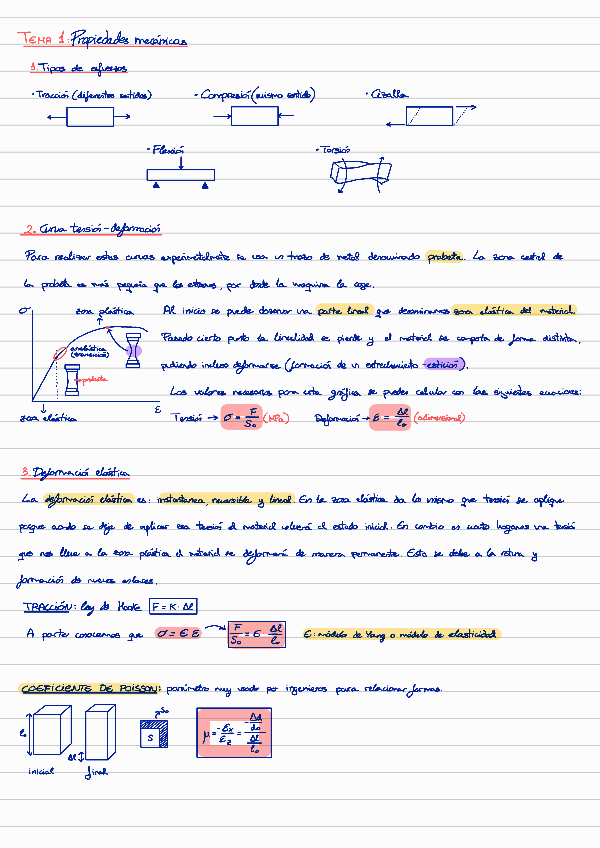 TEMA 1: Propiedades mecánicas
1. Tipos de esfuerzos
· Tracción (diferentes sentidos) · Compresión (mismo sentido) · Cizalla
· Flexión · Torsión
2. Curva tensión-deformación
Para realizar estas curvas experimentalmente se usa un trozo de metal denominado probeta. La zona central de
la probeta es más pequeña que los extremos, por donde la máquina la coge.
σ zona plástica Al inicio se puede observar una parte lineal que denominamos zona elástica del material.
anelástica
(transición)
Pasado cierto punto la linealidad se pierde y el material se comporta de forma distinta,
probeta
pudiendo incluso deformarse (formación de un estrechamiento - estricción).
Los valores necesarios para esta gráfica se pueden calcular con las siguientes ecuaciones:
zona elástica ε Tensión → σ = F/S₀ (MPa) Deformación → ε = Δl/l₀ (adimensional)
3. Deformación elástica
La deformación elástica es: instantánea, reversible y lineal. En la zona elástica da lo mismo que tensión se aplique
porque cuando se deje de aplicar esa tensión el material volverá al estado inicial. En cambio en cuanto hagamos una tensión
que nos lleve a la zona plástica el material se deformará de manera permanente. Esto se debe a la rotura y
formación de nuevos enlaces.
TRACCIÓN: ley de Hooke F = K · Δl
A parte conocemos que σ = E ε F/S₀ = E Δl/l₀ E: módulo de Yang o módulo de elasticidad
COEFICIENTE DE POISSON: parámetro muy usado por ingenieros para relacionar formas.
l₀ Δl S S₀ μ = -εx/εz = -Δd/d₀ / Δl/l₀
inicial final